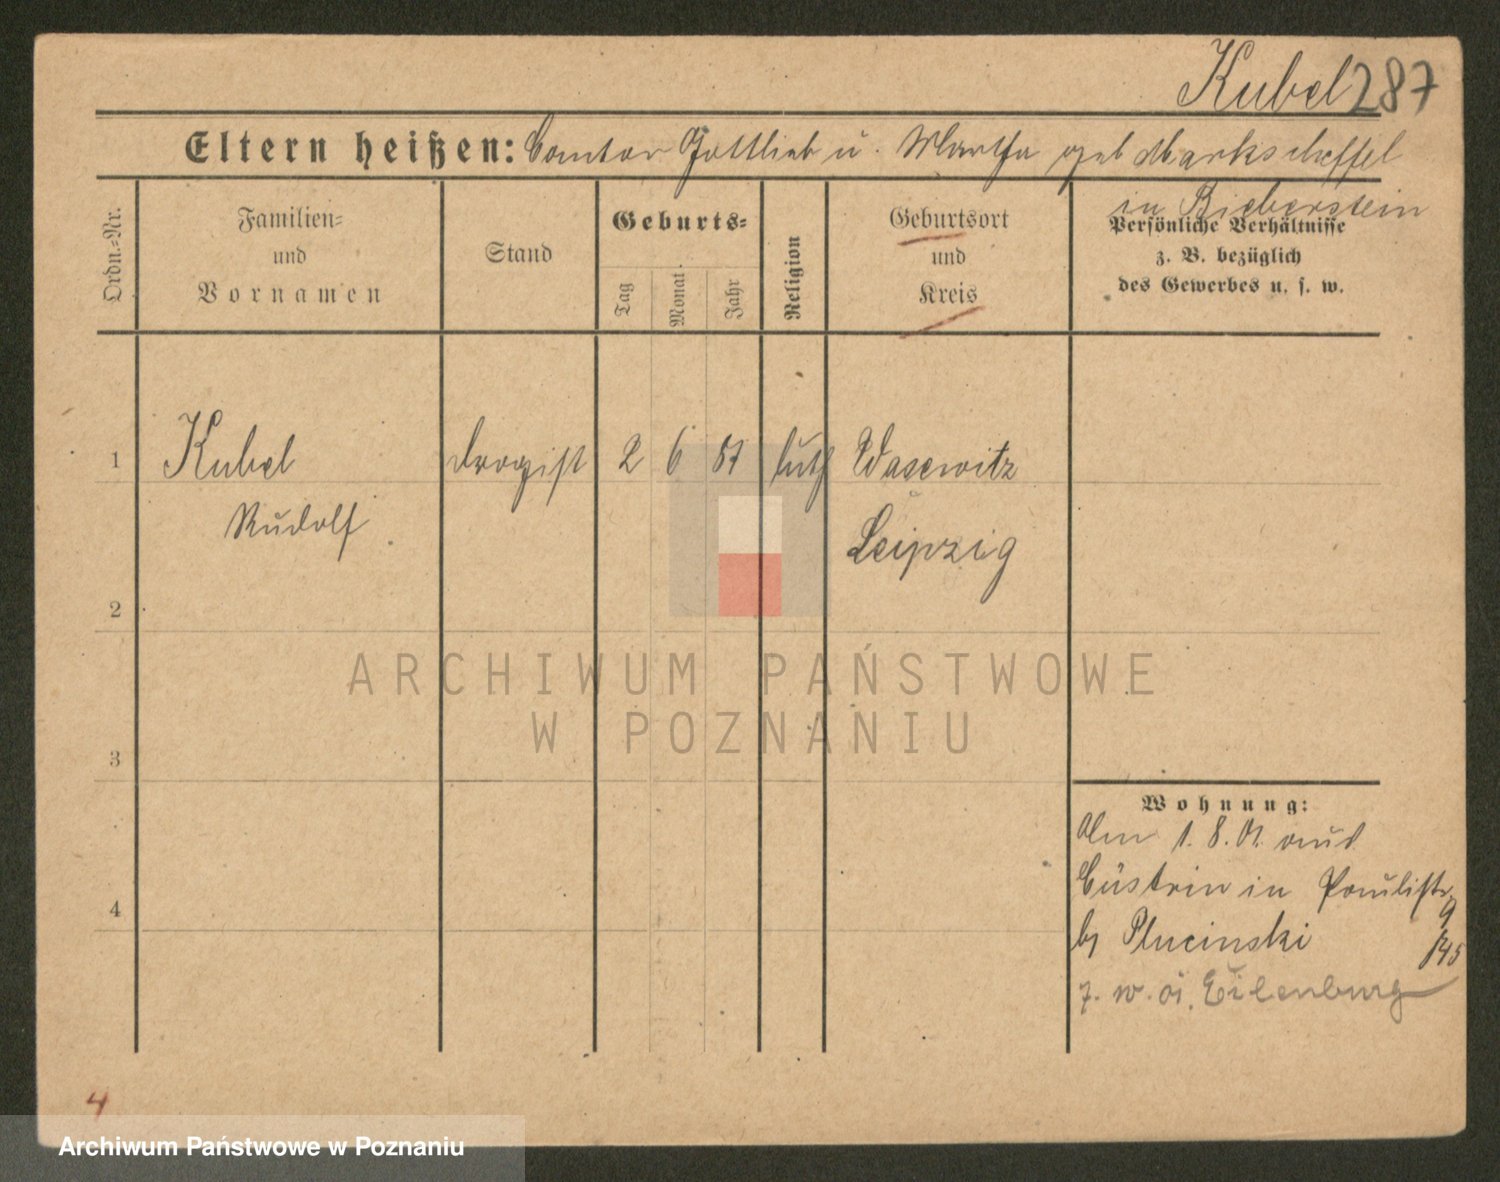 Kubel 287
Eltern heißen: Cantor Gottlieb u. Martha geb Markscheffel
in Bieberstein
Ordn.=Nr.
Familien=
und
Vornamen
Stand
Geburts=
Tag
Monat
Jahr
Religion
Geburtsort
und
Kreis
Persönliche Verhältnisse
z. B. bezüglich
des Gewerbes u. s. w.
1
Kubel
Drogist
2
6
81
luth
Wasewitz
Rudolf
Leipzig
2
3
4
Wohnung:
Am 1. 8. 01. aus
Cüstrin in Paulistr.
9
by Plucinski
145
Eilenburg
4
ARCHIWUM PAŃSTWOWE
W POZNANIU
Archiwum Państwowe w Poznaniu